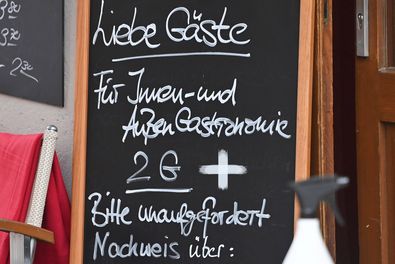 Liebe Gäste
Für Innen-und
Außen Gastronomie
2 G +
Bitte unaufgefordert
Nachweis über: